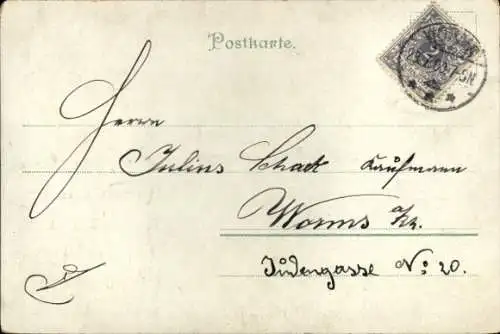 Postkarte.
Herrn
Julius Schack Kaufmann
Worms a/Rh.
Judengasse No: 20.